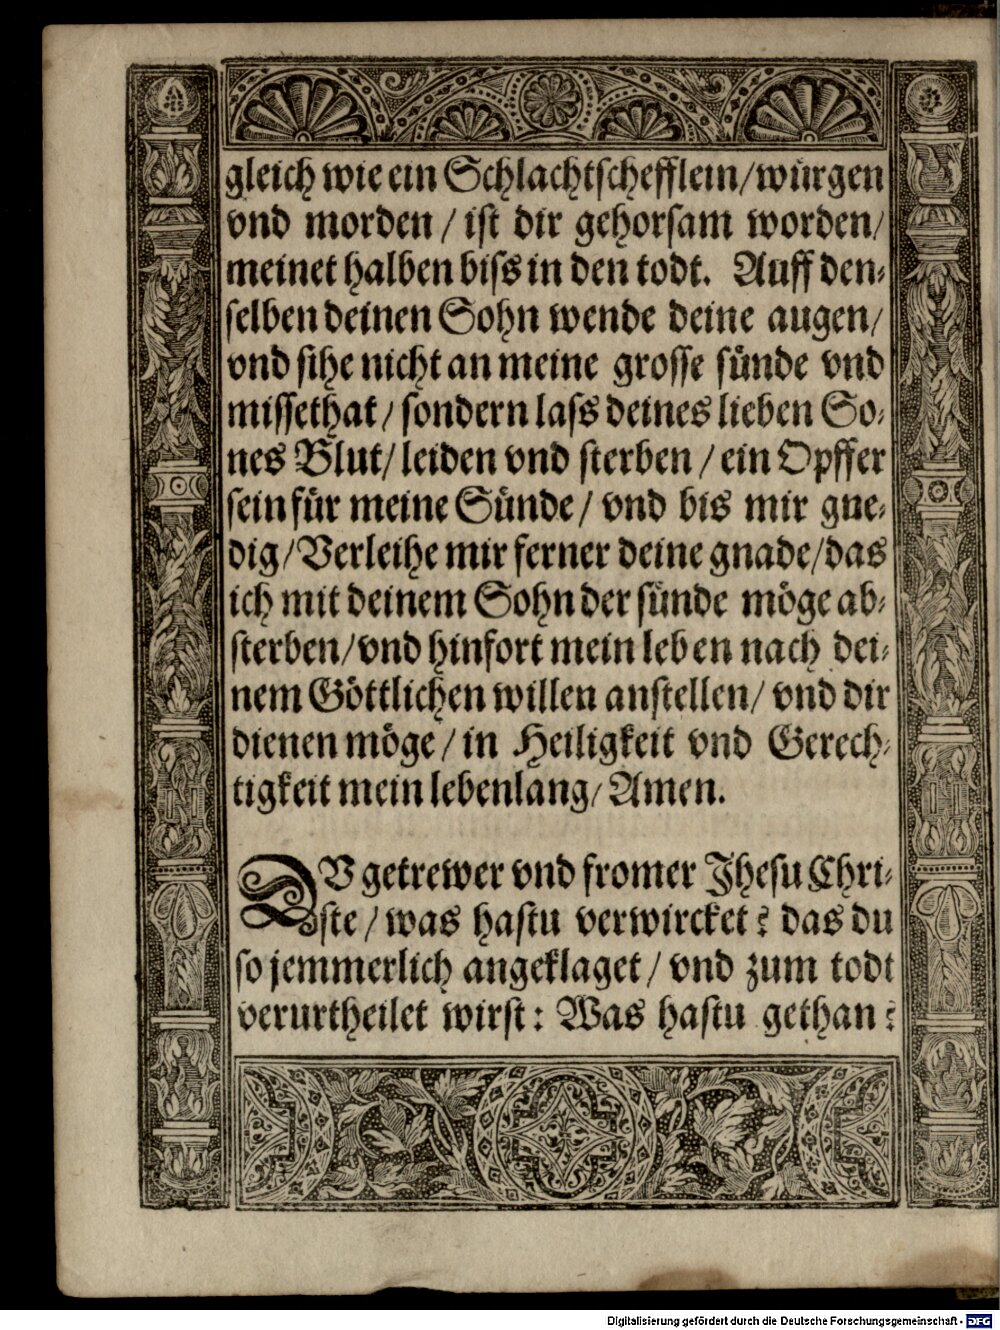 gleich wie ein Schlachtschefflein/würgen
vnd morden / ist dir gehorsam worden/
meinet halben biss in den todt. Auff den-
selben deinen Sohn wende deine augen/
vnd sihe nicht an meine grosse sünde vnd
missethat / sondern lass deines lieben So-
nes Blut/ leiden vnd sterben / ein Opffer
sein für meine Sünde / vnd bis mir gne-
dig/Verleihe mir ferner deine gnade/das
ich mit deinem Sohn der sünde möge ab-
sterben/vnd hinfort mein leben nach dei-
nem Göttlichen willen anstellen/ vnd dir
dienen möge / in Heiligkeit vnd Gerech-
tigkeit mein lebenlang/ Amen.
DV getrewer vnd fromer Jhesu Chri-
ste / was hastu verwircket? das du
so jemmerlich angeklaget / vnd zum todt
verurtheilet wirst: Was hastu gethan?
Digitalisierung gefördert durch die Deutsche Forschungsgemeinschaft - DFG